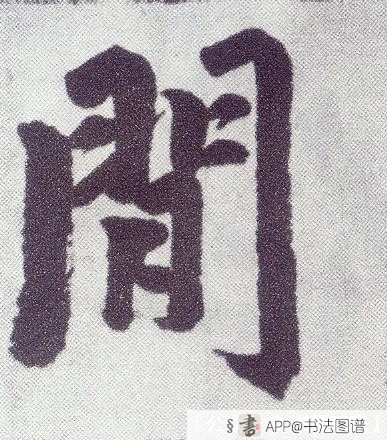 間
§ 書 APP@书法图谱